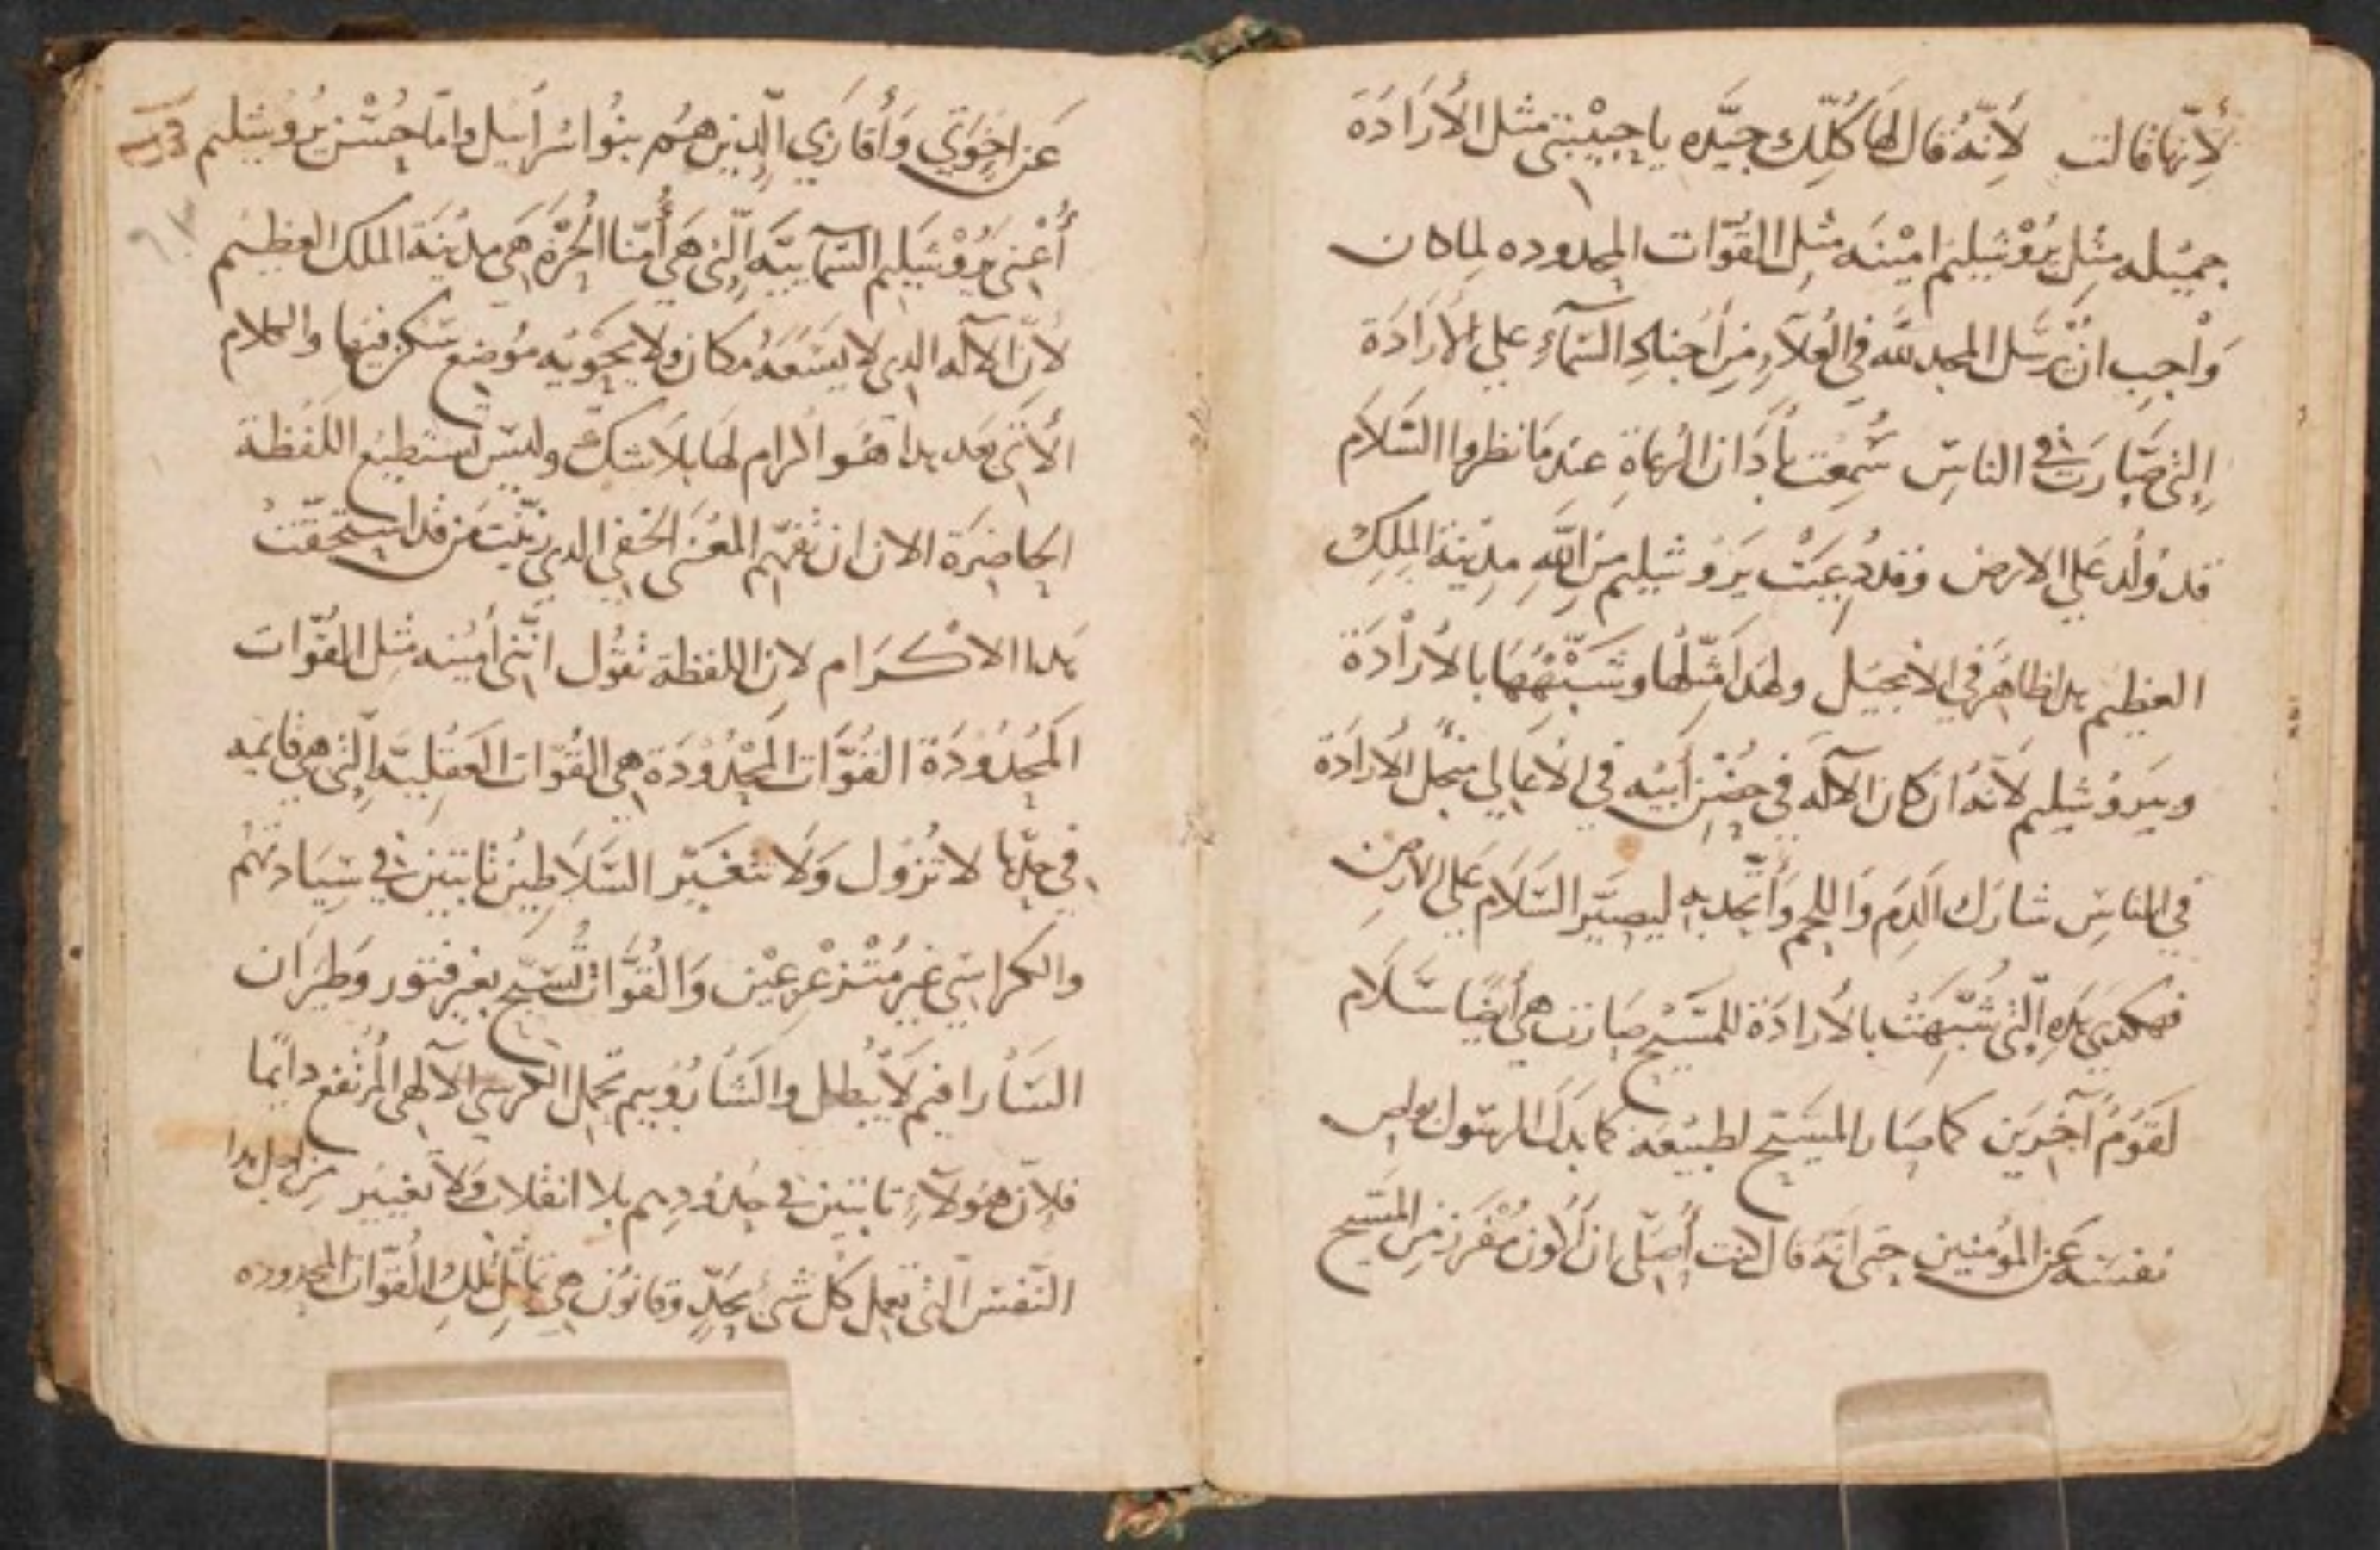 لأِنّها قالت لأِنّهُ قال لها كُلِّك جيَّده يا حبيْبتى مثل الأرَادَة
جميْله مثل يرُوْشَليْم اميْنَه مثل القوَّات المحدوده لماكان
وَاْجب ان نُرسَل المجد للَّه في العُلاَءِ مِن اَجنادِ السَمآءِ علي الأرَادَة
إلتي صَارَت في الناسِ سُمِعَت بأدَان الرُعاةِ عند مَا نظروا السَّلَام
قد وُلد عَلي الارض وَقد دُعِيَتْ يَرُوشَليم مِنَ اللَّهِ مدِينة المَلِك
العظيْم هدا ظاهَر في الانجيَل ولهَدا مَثّلها وَشَبّهَهَا بالأرادَة
وبيَروُشَليم لأنّهُ ان كان الآلَه في حضْن أبيْه في الأعَالي مَنْجل الأرَادَة
في الناسِ شارَك الَدم وَاللحم وَأتّحد به ليصيّر السَّلَام عَلي الارضِ
فهكدي هَدِه إلّتى شُبّهَتْ بالأرادَة للمَسيْح صَارَت هي أيضًا سَّلَام
لقَوْمٍ آخَرَين كما صَار المسِيْح لطبيْعَة كما بَدَل الرسَول بولص
نفسَه عَن المؤمنين حتى انّهُ قال كنت أُصَلّي ان أكُون مُفْرَز مِن المَسَيح
عَن اخَوَتي وَأَقَاربي الّدِين همْ بنُوا اسْرَائيل وامّا حُسْن يرُوشَليم
أُعْنى يرُوْشَليم السَمآييّه إلّتى هَي أمّنا الحُرَّة هَي مدِيْنَة الملك العظيْم
لأنّ الآله الدي لا يسَعَهُ مكان ولا يحَويْه مَوْضع سَكن فيْها والكلام
الأتى بَعد هدا هُوَ اكرام لهَا بلَا شكّ وليسَ تسَتطيْع اللفْظة
الحاضِرَة الان ان تفهّم المعْنَى الخفي الدي زيّنتَ مَن قد استَحَقّت
هدا الاكْرَام لان اللفظة تقُول انّنى أميْنه مثل القوّات
المَحْدُوْدَة القُوَّات المَحْدُوْدَة هي القُوّات العَقْليّه إلّتى هي قايمه
في حدّها لا تزُوْل وَلَا تتغَيّر السَّلَاطيْن ثابتين في سَيَادتهُمْ
والكراسَي غيْر مُتْزعْزعيْن وَالقُوَّات تُسَبّح بغير فتور وَطيَرَان
السَّارافيم لَا يُبْطل والشَارُوبيم تحمل الكرسَي الآلهي المرْتفع دائمًا
فلانّ هَؤلآءِ تابتين في حُدُودِهم بلا انقلاب وَلَا تغييْر مِن اجل هدا
النّفسَ الّتى تعمل كُلّ شَئ بحَدٍّ وقانُوْن هي تماثل تلك القوّات المحدوده